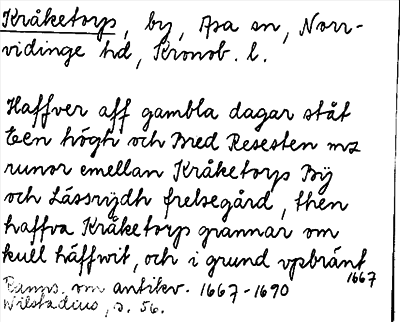 Kråketorp, by, Asa sn, Norr-
vidinge hd, Kronob. l.
Haffver aff gambla dagar ståt
Een högh och Bred Resesten mz
runor emellan Kråketorps Bÿ
och Lässrÿdh frelsegård, then
haffva Kråketorps grannar om
kull häffwit, och i grund vpbränt
1667
Ranns. om antikv. 1667-1690
Wilstadius, s. 56.